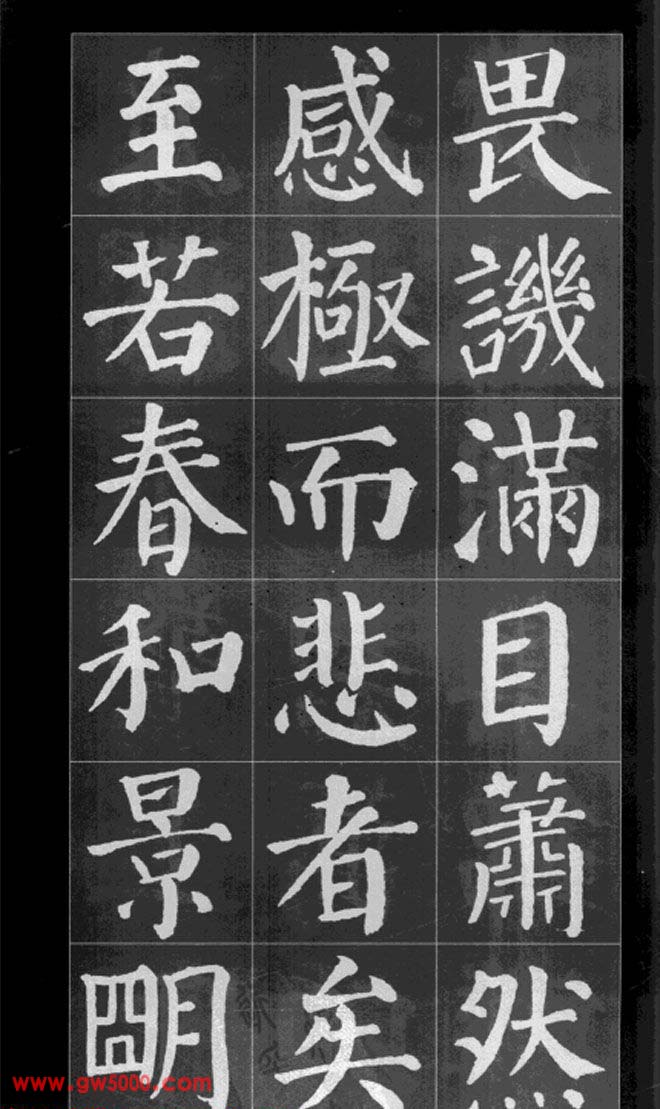 畏譏滿目蕭然
感極而悲者矣
至若春和景朙
www.gw5000.com